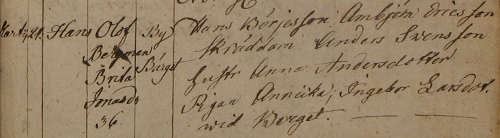 Hans Olof By Hans Börjesson Ambjörn Ericsson
Bergman Berget Skriddam Anders Svensson
Brita hustr Anna Andersdotter
Jonasdr Pigan Annicka, Ingebor Larsdot.
36. wid Berget.